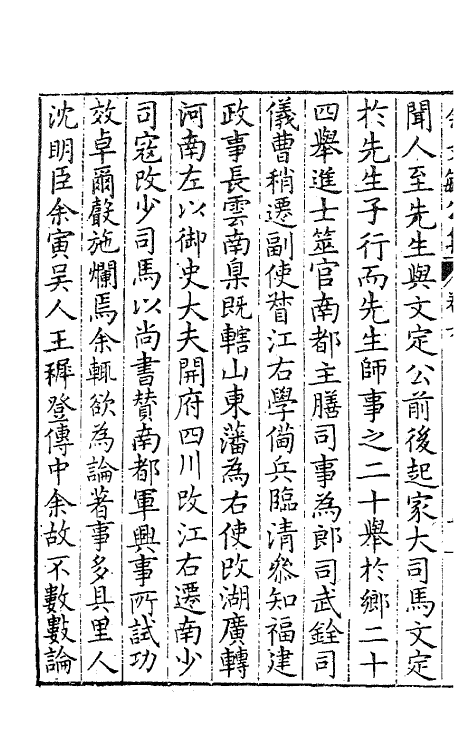 聞人至先生與文定公前後起家大司馬文定
於先生子行而先生師事之二十舉於鄉二十
四舉進士筮官南都主膳司事為郎司武銓司
儀曹稍遷副使督江右學備兵臨清叅知福建
政事長雲南臬既轄山東藩為右使改湖廣轉
河南左以御史大夫開府四川改江右遷南少
司寇改少司馬以尚書贊南都軍興事所試功
效卓爾嚴施爛焉余輒欲為論著事多具里人
沈明臣余寅吳人王穉登傳中余故不數數論